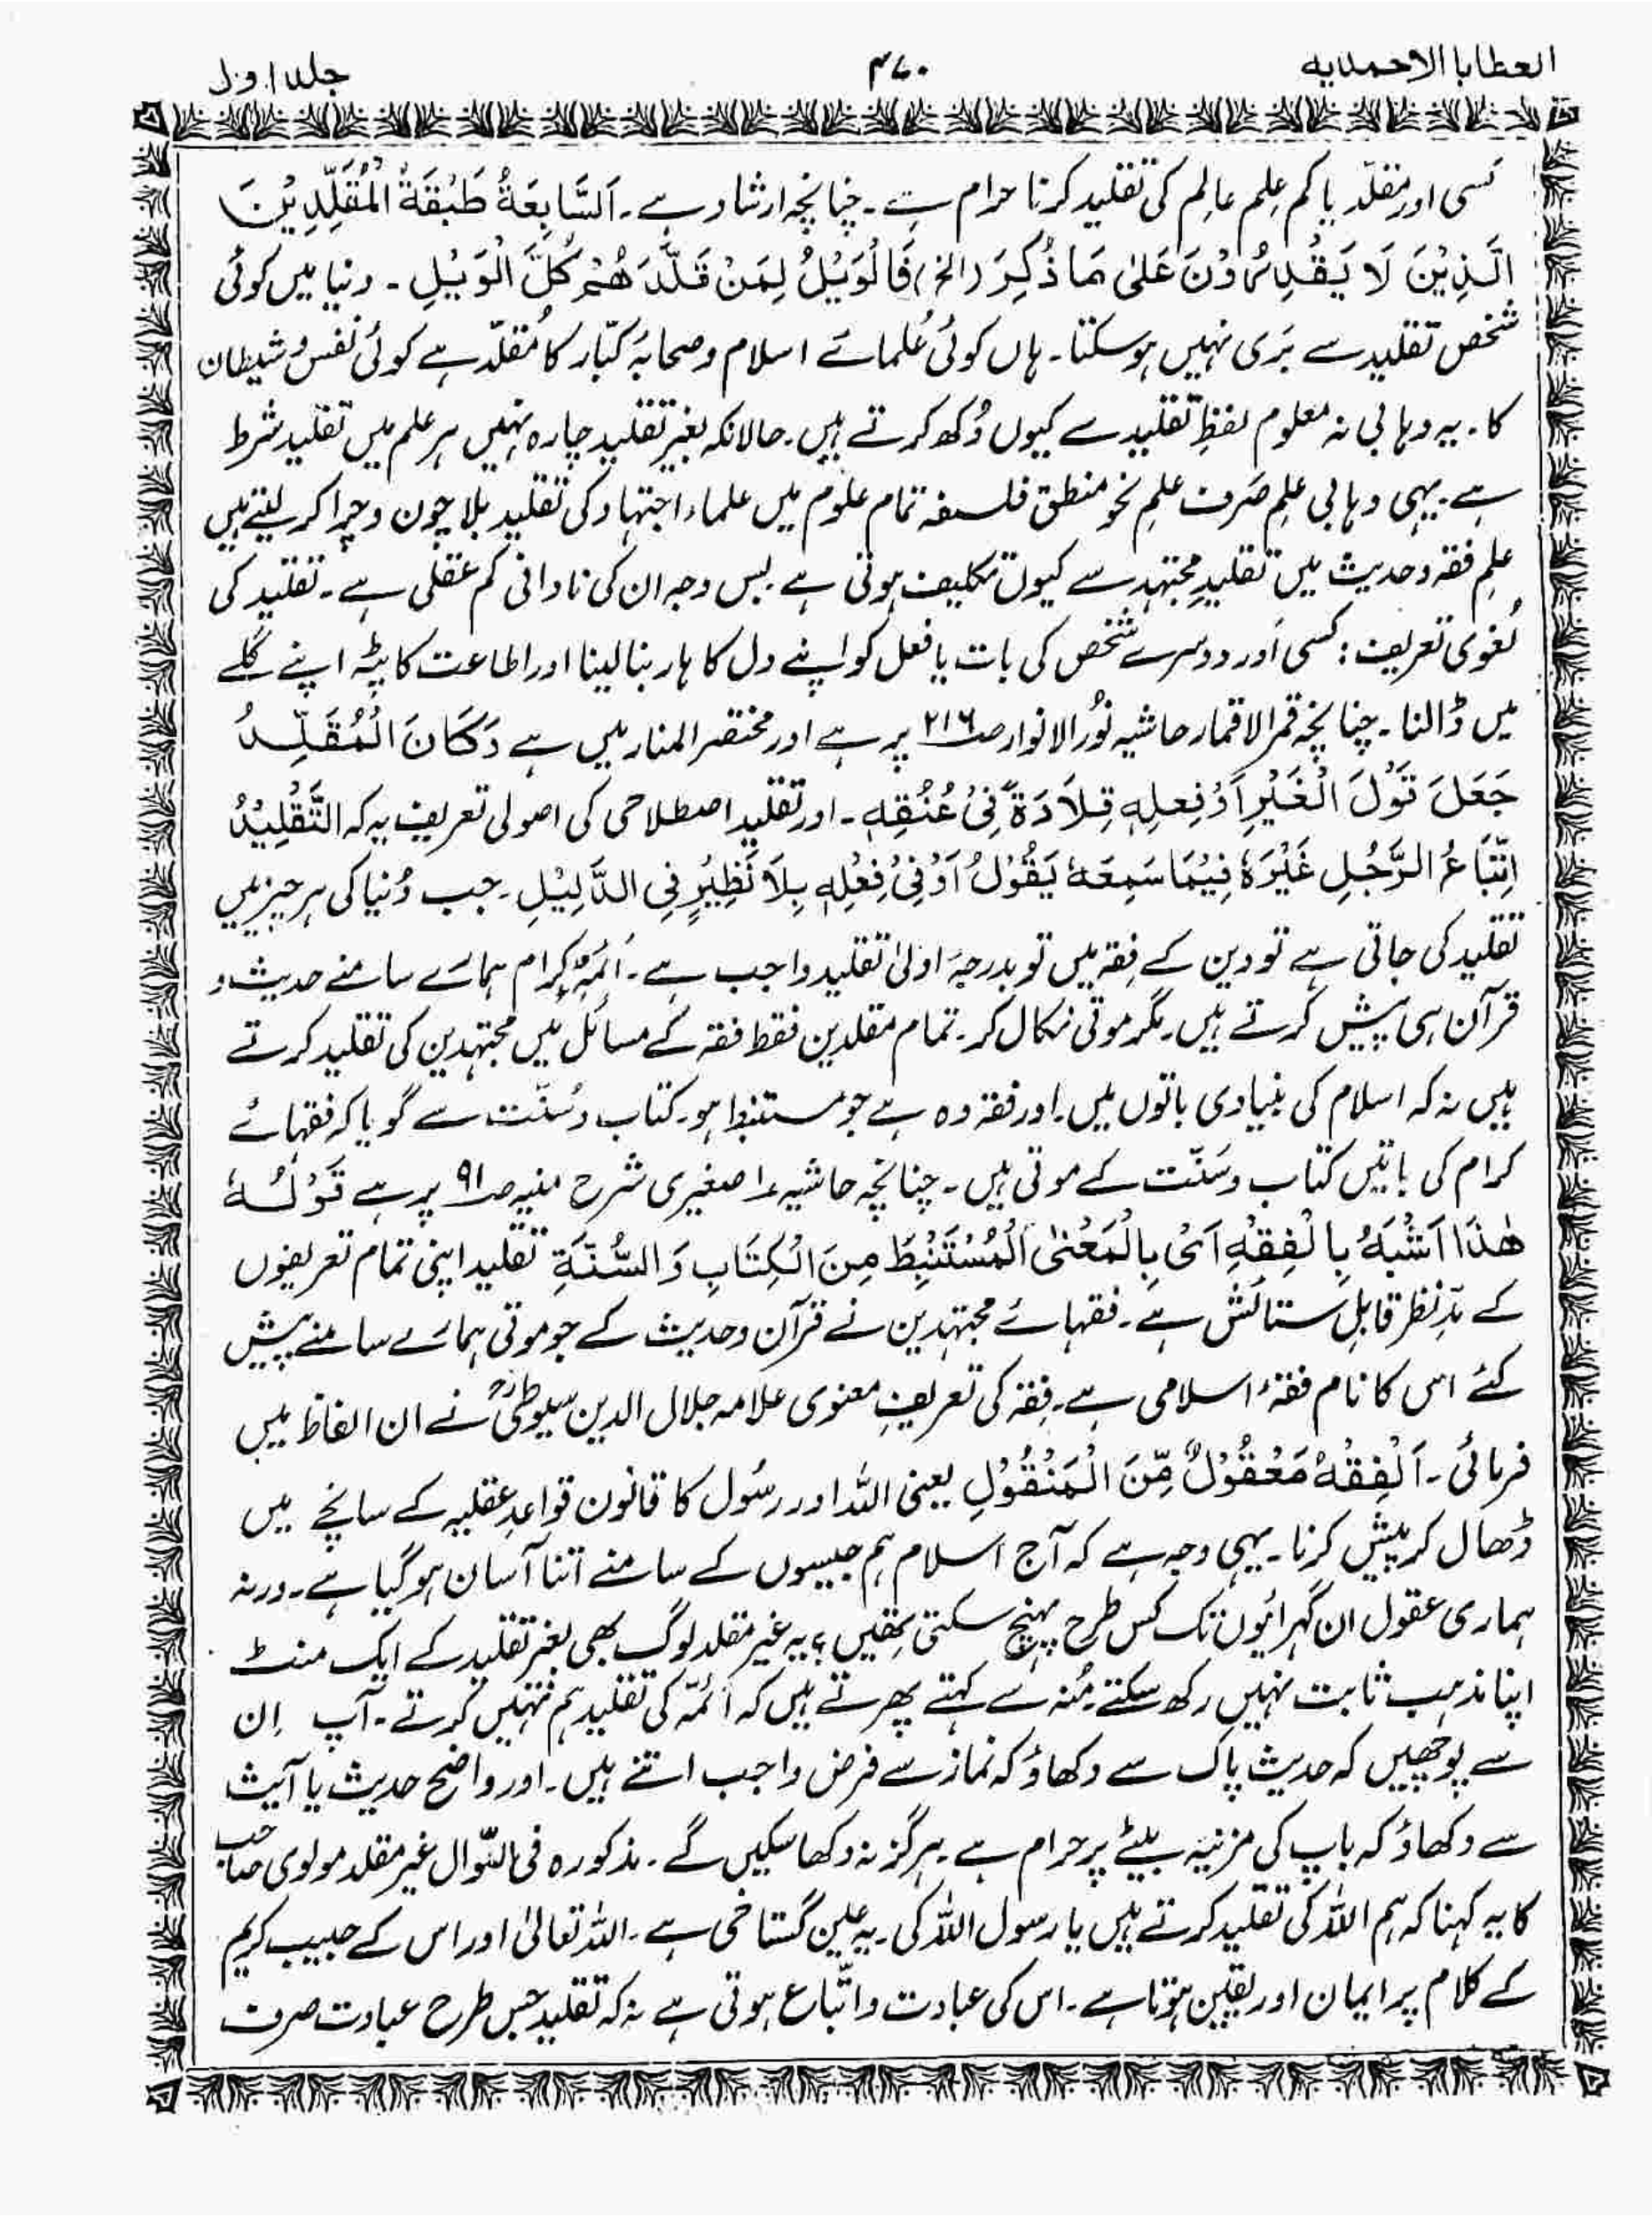 العطايا الاحمديه ۴۷۰ جلد اول
کسی اور مقلّد یا کم عِلم عالِم کی تقلید کرنا حرام ہے۔ چنانچہ ارشاد ہے۔ اَلسَّابِعَةُ طَبْقَةُ الْمُقَلِّدِيْنَ
الَّذِيْنَ لَا يَقْدِرُوْنَ عَلىٰ مَا ذُكِرَ (الخ) فَالْوَيْلُ لِمَنْ قَلَّدَهُمْ كُلَّ الْوَيْلِ ۔ دنیا میں کوئی
شخص تقلید سے بَری نہیں ہو سکتا۔ ہاں کوئی عُلمائے اسلام و صحابۂ کبّار کا مُقلّد ہے کوئی نفس و شیطان
کا۔ یہ وہابی نہ معلوم لفظِ تقلید سے کیوں دُکھ کرتے ہیں۔ حالانکہ بغیر تقلید چارہ نہیں ہر علم میں تقلید شرط
ہے۔ یہی وہابی علمِ صَرف علمِ نحو منطق فلسفہ تمام علوم میں علماء اجتہاد کی تقلید بلا چون و چرا کر لیتے ہیں
علمِ فقہ و حدیث میں تقلیدِ مجتہد سے کیوں تکلیف ہوتی ہے بس وجہ ان کی نادانی کم عقلی ہے۔ تقلید کی
لُغوی تعریف: کسی اَور دوسرے شخص کی بات یا فعل کو اپنے دل کا ہار بنا لینا اور اطاعت کا پٹہ اپنے گلے
میں ڈالنا۔ چنانچہ قمر الاقمار حاشیہ نُورُ الانوار صـ ۲۱۶ پر ہے اور مختصر المنار میں ہے وَكَانَ الْمُقَلِّدُ
جَعَلَ قَوْلَ الْغَيْرِ اَوْ فِعلِهٖ قِلَادَةً فِيْ عُنُقِهٖ۔ اور تقلید اصطلاحی کی اصولی تعریف یہ کہ التَّقْلِيْدُ
اِتِّبَاعُ الرَّجُلِ غَيْرَهٗ فِيْمَا سَمِعَهٗ يَقُوْلُ اَوْ فِيْ فِعْلِهٖ بِلَا نَظِيْرٍ فِى الدَّلِيْلِ۔ جب دُنیا کی ہر چیز میں
تقلید کی جاتی ہے تو دین کے فِقہ میں تو بدرجۂ اولیٰ تقلید واجب ہے۔ اَئمہ کرام ہمارے سامنے حدیث و
قرآن ہی پیش کرتے ہیں۔ مگر موتی نکال کر۔ تمام مقلدین فقط فقہ کے مسائل میں مجتہدین کی تقلید کرتے
ہیں نہ کہ اسلام کی بنیادی باتوں میں۔ اور فقہ وہ ہے جو مستنبط ہو۔ کتاب و سُنّت سے گویا کہ فقہائے
کرام کی باتیں کتاب و سَنّت کے موتی ہیں۔ چنانچہ حاشیہ ۱ صغیری شرح منیہ صـ ۹۱ پر ہے قَوْلُهٗ
هٰذَا اَشْبَهُ بِالْفِقْهِ اَىْ بِالْمَعْنٰى اَلْمُسْتَنْبِطَ مِنَ الْكِتَابِ وَالسُّنَّةِ تقلید اپنی تمام تعریفوں
کے مدِّ نظر قابلِ ستائش ہے۔ فقہائے مجتہدین نے قرآن و حدیث کے جو موتی ہمارے سامنے پیش
کئے اس کا نام فقۂ اسلامی ہے۔ فِقہ کی تعریفِ معنوی علامہ جلال الدین سیوطیؒ نے ان الفاظ میں
فرمائی۔ اَلْفِقْهُ مَعْقُوْلٌ مِّنَ الْمَنْقُوْلِ یعنی اللہ اور رسُول کا قانون قواعدِ عقلیہ کے سانچے میں
ڈھال کر پیش کرنا۔ یہی وجہ ہے کہ آج اسلام ہم جیسوں کے سامنے اتنا آسان ہو گیا ہے۔ ورنہ
ہماری عقول ان گہرائیوں تک کس طرح پہنچ سکتی تھیں؟ یہ غیر مقلد لوگ بھی بغیر تقلید کے ایک منٹ
اپنا مذہب ثابت نہیں رکھ سکتے مُنہ سے کہتے پھرتے ہیں کہ اَئمّہ کی تقلید ہم نہیں کرتے۔ آپ اِن
سے پوچھیں کہ حدیث پاک سے دکھاؤ کہ نماز سے فرض واجب اتنے ہیں۔ اور واضح حدیث یا آیت
سے دکھاؤ کہ باپ کی مزنیَہ بیٹے پر حرام ہے۔ ہرگز نہ دکھا سکیں گے۔ مذکورہ فی السّوال غیر مقلد مولوی صاحب
کا یہ کہنا کہ ہم اللہ کی تقلید کرتے ہیں یا رسول اللہ کی۔ یہ عین گستاخی ہے۔ اللہ تعالیٰ اور اس کے حبیب کریم
کے کلام پر ایمان اور یقین ہوتا ہے۔ اس کی عبادت و اتّباع ہوتی ہے نہ کہ تقلید جس طرح عبادت صرف